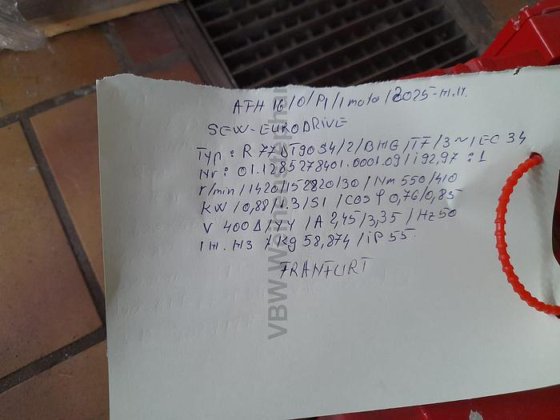 ATH 16/0/P1/1 moto/2025-M.M
SEW-EURODRIVE
Typ: R 77 DT90S4/2/BMG/TF/3~IEC 34
Nr: 01.1285278401.0001.09/i92,97:1
r/min/1420/152820/30/Nm 550/410
KW/0,88/1.3/S1/COS φ 0,76/0,85
V 400Δ/YY/A 2,45/3,35/Hz50
IM. M3 /Kg 58,874/iP 55.
FRANFURT